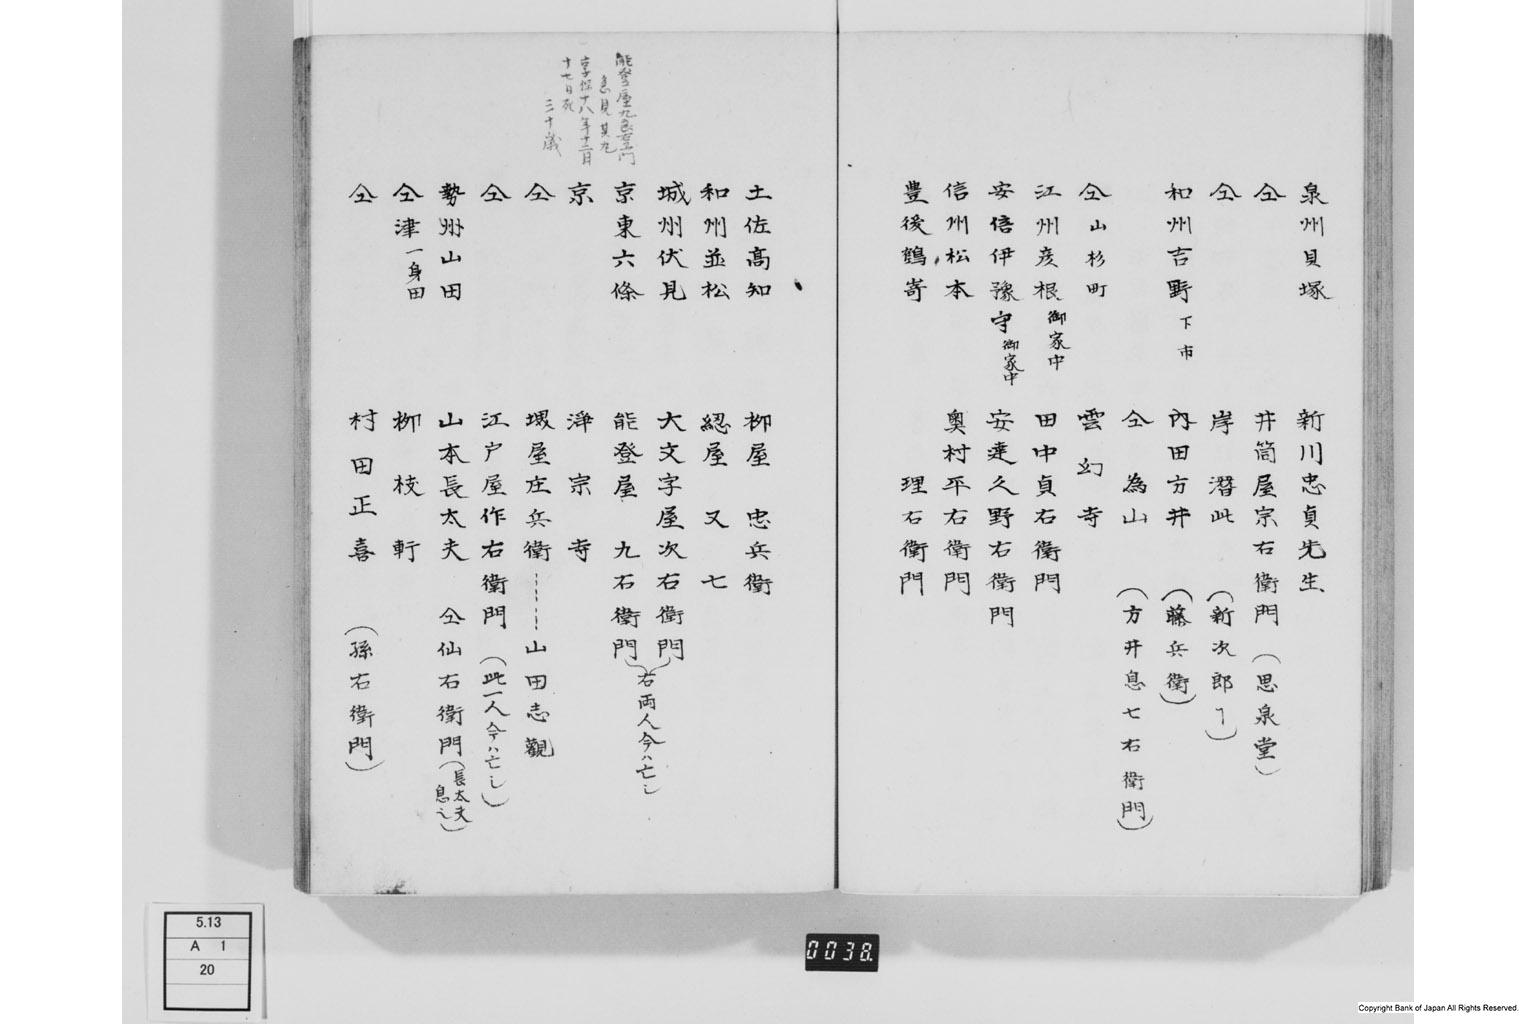 泉州貝塚　新川忠貞先生
仝　井筒屋宗右衛門（思泉堂）
仝　岸潜此（新次郎ヿ）
和州吉野下市　内田方井（藤兵衛）
仝為山（方井息七右衛門）
仝山杉町　雲幻寺
江州彦根御家中　田中貞右衛門
安信伊豫守御家中　安達久野右衛門
信州松本　奥村平右衛門
豊後鶴嵜　理右衛門
土佐高知　柳屋忠兵衛
和州並松　綛屋又七
城州伏見　大文字屋次右衛門
京東六條　能登屋九右衛門
右両人今ハ亡し
京　浄宗寺
仝　堺屋庄兵衛……山田志観
仝　江戸屋作右衛門（此一人今ハ亡し）
勢州山田　山本長太夫　仝仙右衛門（長太夫息之）
仝津一身田　柳枝軒
仝　村田正喜（孫右衛門）
能登屋九右衛門
息見其九
享保十八年十二月
十七日死
三十歳
5.13
A 1
20
0038.
Copyright Bank of Japan All Rights Reserved.